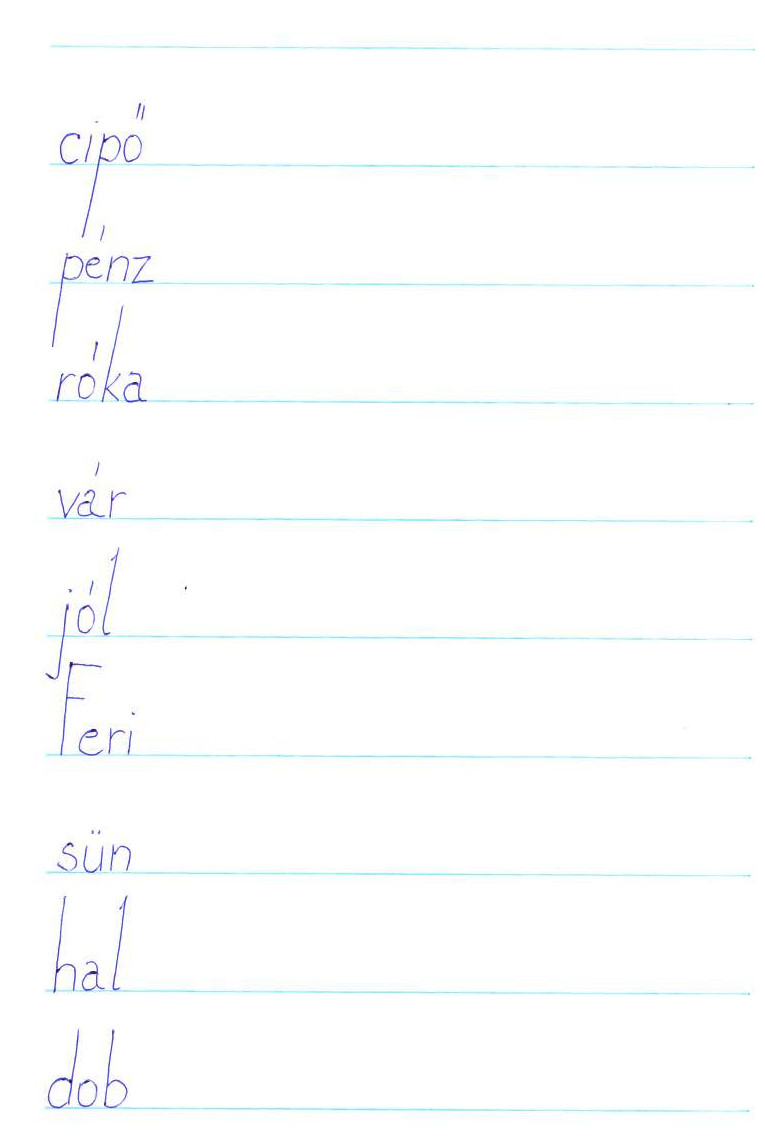 cipő
pénz
róka
vár
jól
Feri
sün
hal
dob